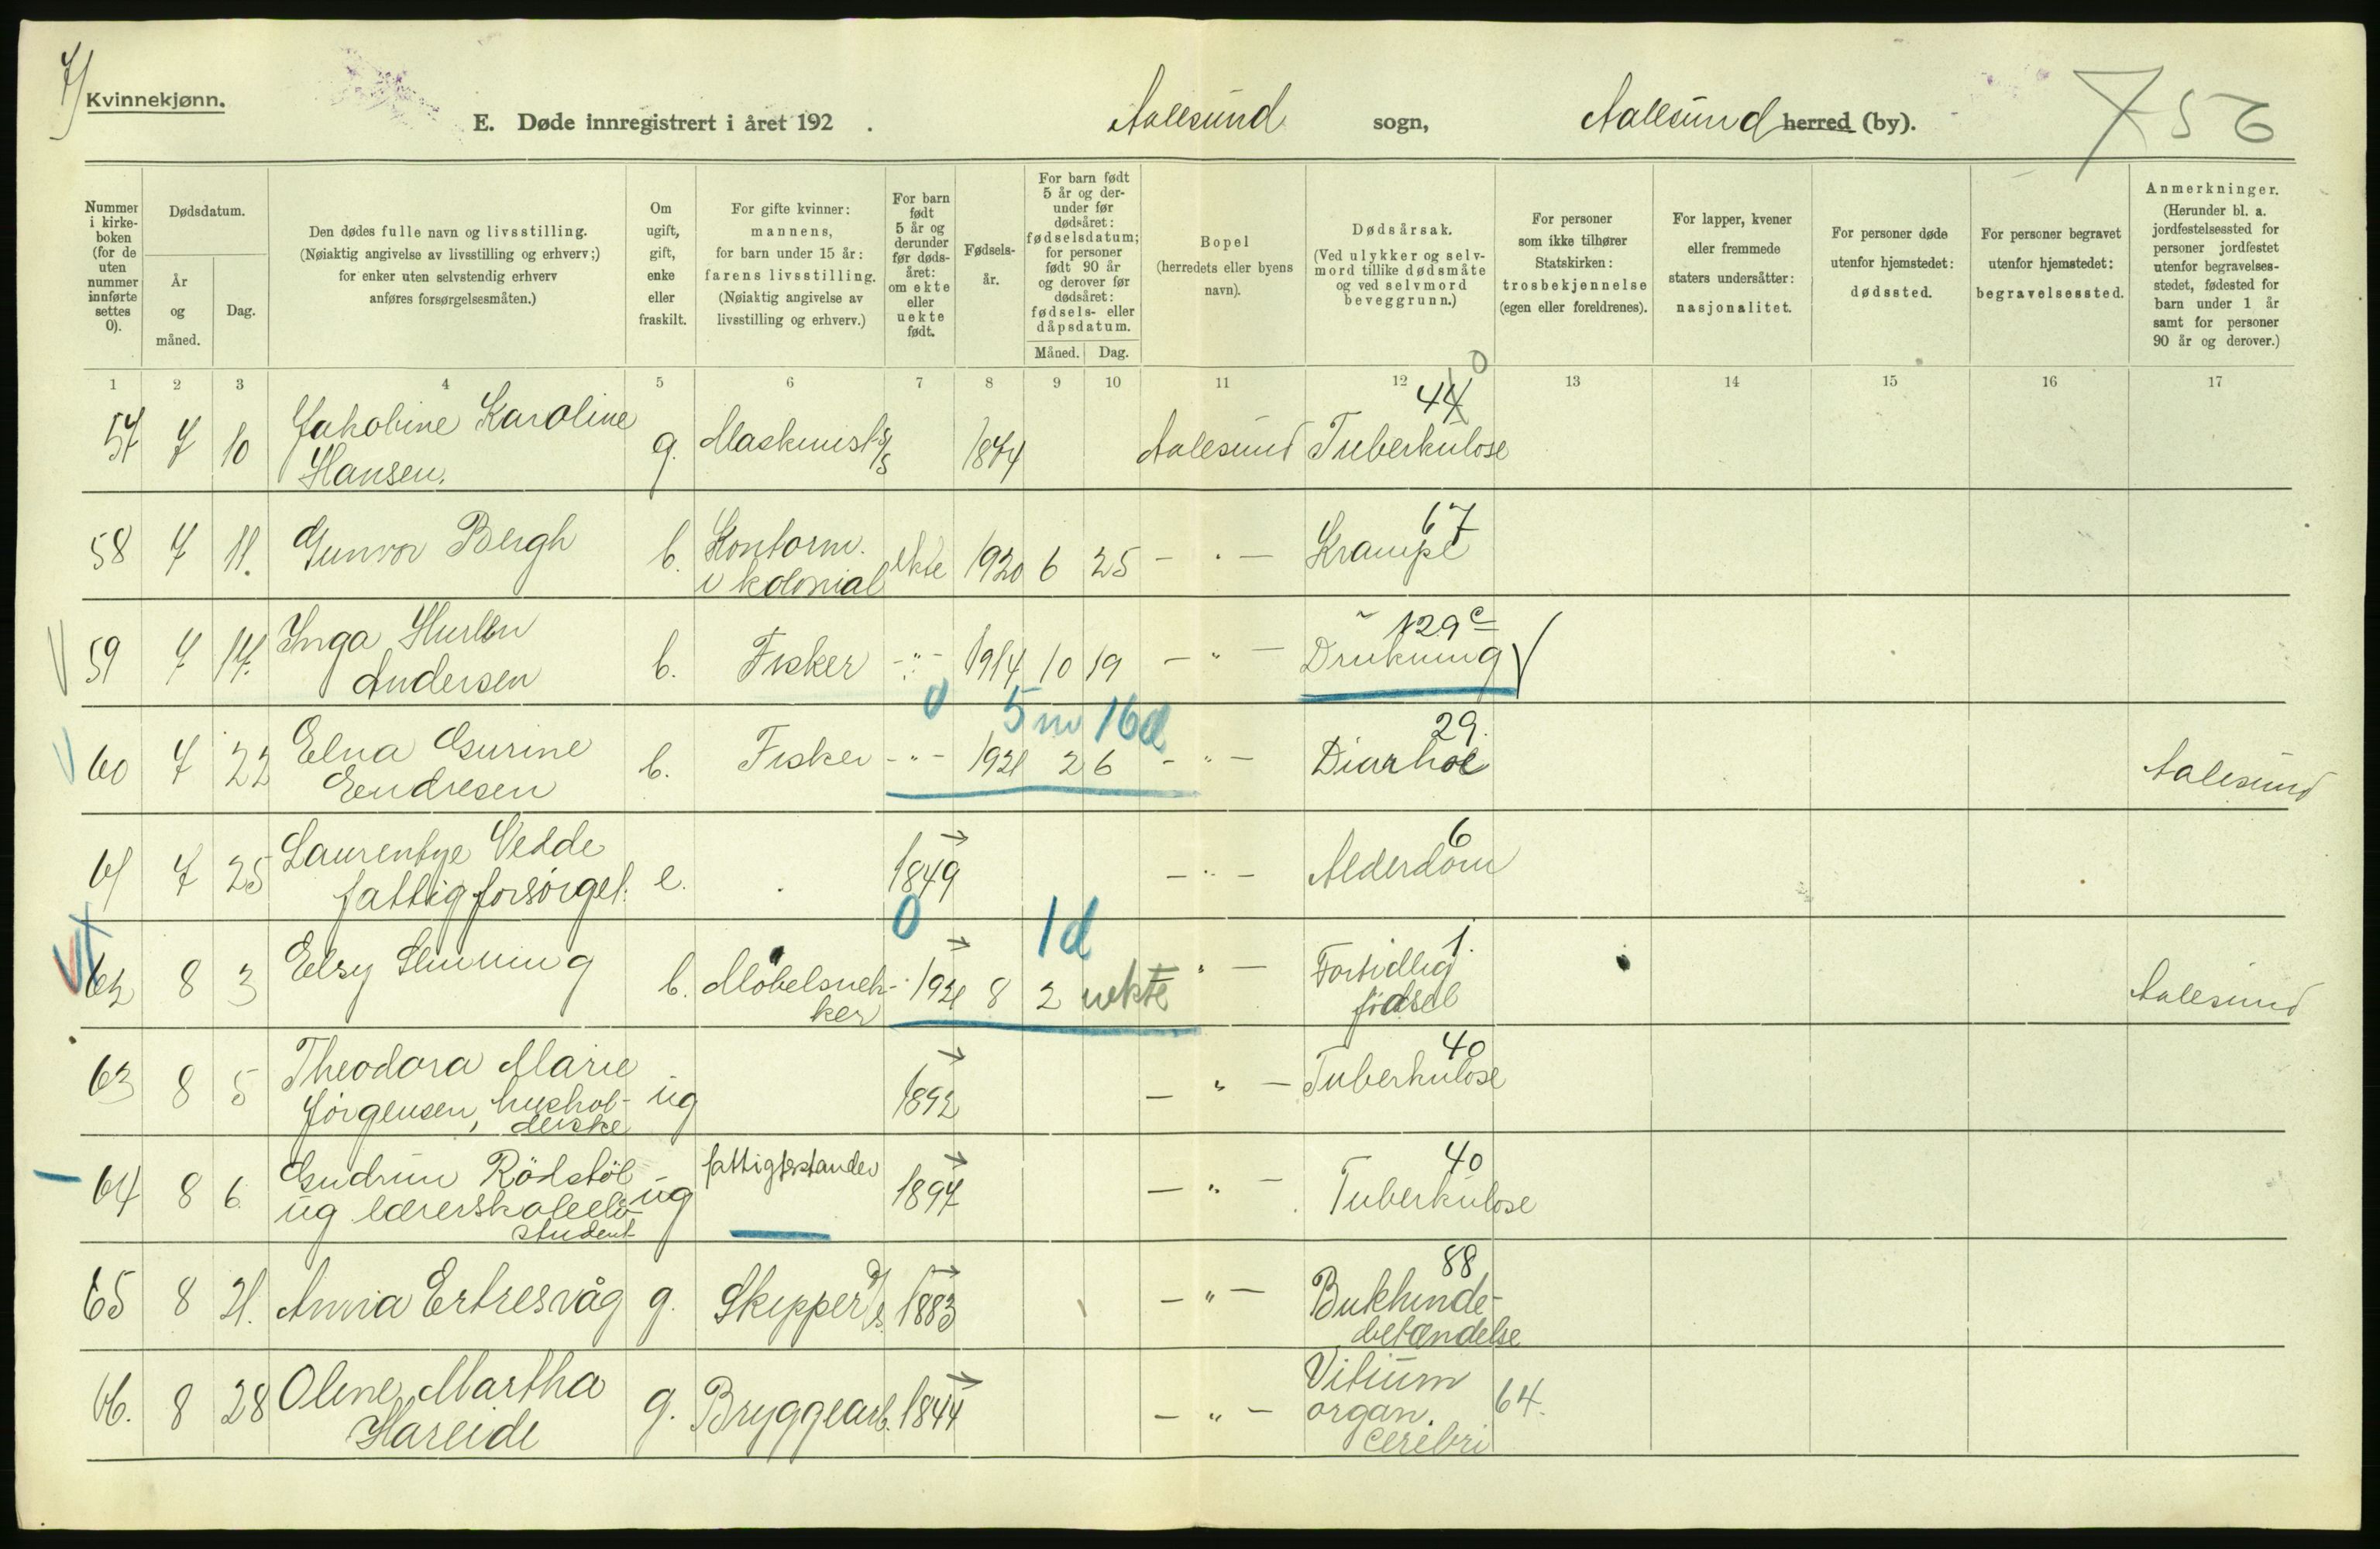 7)
Kvinnekjønn.
E. Døde innregistrert i året 192 .
Aalesund sogn,
Aalesund herred (by).
Nummer i kirkeboken (for de uten nummer innførte settes 0).
Dødsdatum.
År og måned.
Dag.
Den dødes fulle navn og livsstilling.
(Nøiaktig angivelse av livsstilling og erhverv;)
for enker uten selvstendig erhverv
anføres forsørgelsesmåten.)
Om ugift, gift, enke eller fraskilt.
For gifte kvinner:
mannens,
for barn under 15 år:
farens livsstilling.
(Nøiaktig angivelse av
livsstilling og erhverv.)
For barn født 5 år og derunder før dødsåret: om ekte eller uekte født.
Fødselsår.
For barn født 5 år og derunder før dødsåret: fødselsdatum; for personer født 90 år og derover før dødsåret: fødsels- eller dåpsdatum.
Måned. Dag.
Bopel
(herredets eller byens
navn).
Dødsårsak.
(Ved ulykker og selvmord tillike dødsmåte og ved selvmord beveggrunn.)
For personer
som ikke tilhører
Statskirken:
trosbekjennelse
(egen eller foreldrenes).
For lapper, kvener
eller fremmede
staters undersåtter:
nasjonalitet.
For personer døde
utenfor hjemstedet:
dødssted.
For personer begravet
utenfor hjemstedet:
begravelsessted.
Anmerkninger.
(Herunder bl. a.
jordfestelsessted for
personer jordfestet
utenfor begravelses-
stedet, fødested for
barn under 1 år
samt for personer
90 år og derover.)
1 2 3 4 5 6 7 8 9 10 11 12 13 14 15 16 17
57 7 10 Jakobine Karoline Hansen. g. Maskinist d/s 1874 Aalesund Tuberkulose 44 0
58 7 11. Gunvor Bergh b. Kontorm. i kolonial ekte 1920 6 25 - " - Krampe 67
59 7 17. Inga Hurlen Andersen b. Fisker - " - 1914 10 19 - " - Drukning 129 c
60 7 22 Elna Gurine Endresen b. Fisker - " - 1921 2 6 - " - Diarhoe 29. Aalesund
0 5 m 16 d
61 7 25 Laurentze Vedde fattigforsørget. e. 1849 - " - Alderdom 6
0 1 d
62 8 3 Elsy b. Møbelsnekker 1921 8 2 uekte " - Fortidlig fødsel 1. Aalesund
63 8 5 Theodora Marie Jørgensen, husholderske ug 1892 - " - Tuberkulose 40
64 8 6. Gudrun Rödstöl ug lærerskoleelev student ug fattigforstander 1897 - " - Tuberkulose 40
65 8 21. Anna Ertresvåg g. Skipper d/s. 1883 - " - Bukhinde-betændelse 88
66. 8 28 Oline Martha Hareide g. Bryggearb. 1844 - " - Vitium organ. cerebri 64.